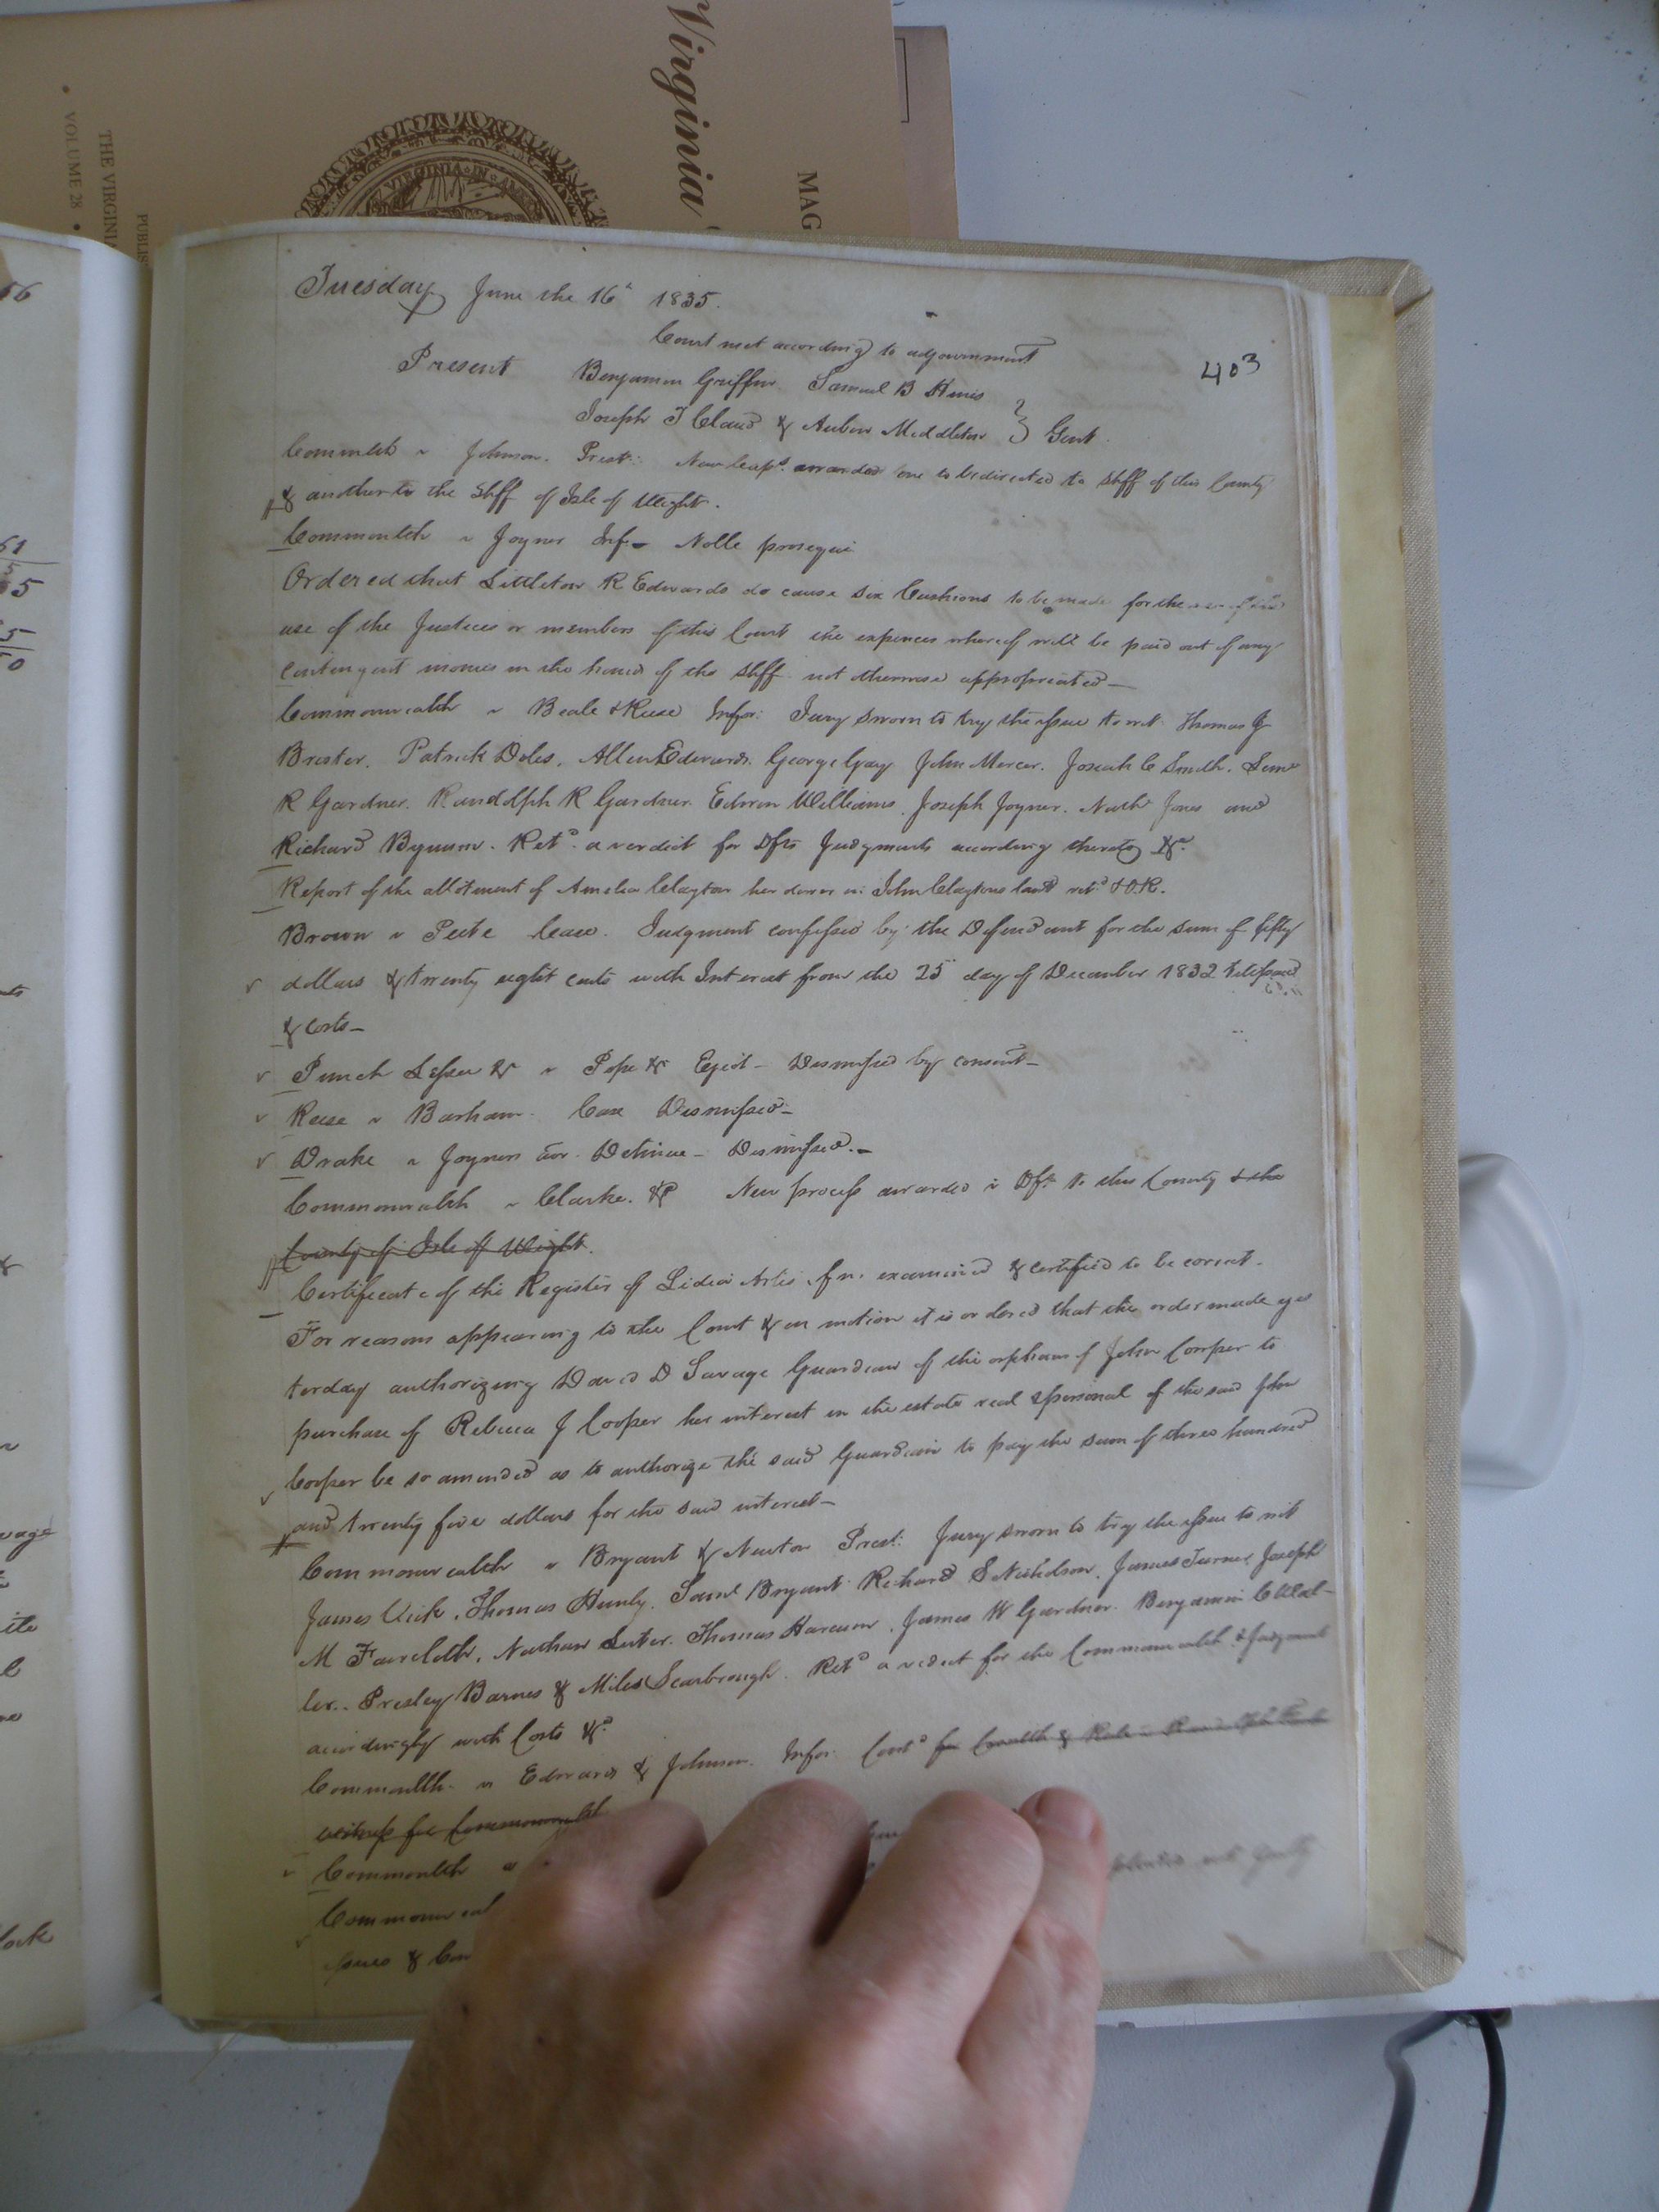 Virginia
MAG
THE VIRGINIA
VOLUME 28
PUBLIS
VIRGINIA IN AM
Tuesday June the 16" 1835.
Court met according to adjournment
403
Present Benjamin Griffin Samuel B Hines
Joseph T Claud & Aubin Middleton } Gent.
Commlth v Johnson. Prest: New Caps. awarded one to be directed to Shff of this County
& another to the Shff of Isle of Wight.
Commonlth v Joyner Inf. Nolle prosequi
Ordered that Littleton R Edwards do cause six Cushions to be made for the
use of the Justices or members of this Court the expences whereof will be paid out of any
contingent monies in the hands of the Shff not otherwise appropriated
Commonwealth v Beale & Reese Infor: Jury sworn to try the issue to wit Thomas J
Brister. Patrick Doles. Allen Edwards. George Gay John Mercer. Josiah C Smith.
R Gardner. Randolph R Gardner. Edwin Williams. Joseph Joyner. Nath Jones and
Richard Bynum. Retd. a verdict for Dfts Judgments according thereto &c
Report of the allotment of Amelia Clayton her dower in John Claytons land retd & O.R.
Brown v Peete Case. Judgment confessed by the Defendant for the sum of fifty
dollars & twenty eight cents with Interest from the 25 day of December 1832 till paid
& costs
Punch Lessee &c v Pope &c Eject Dismissed by consent
Reese v Barham. Case Dismissed
Drake v Joyners Exr. Detinue Dismissed.
Commonwealth v Clarke. New process awarded v Dft. to this County & the
County of Isle of Wight.
Certificate of the Register of Lidia Artis f.n. examined & certified to be correct.
For reasons appearing to the Court & on motion it is ordered that the order made yes
terday authorizing David D Savage Guardian of the orphans of John Cooper to
purchase of Rebecca J Cooper her interest in the estate real & personal of the said John
Cooper be so amended as to authorize the said Guardian to pay the sum of three hundred
and twenty five dollars for the said interest
Commonwealth v Bryant & Newton Prest: Jury sworn to try the issue to wit
James Vick. Thomas Hunly. Saml Bryant Richard S Nicholson. James Turner Joseph
M Faircloth. Nathan Luter. Thomas Harcum. James W Gardner. Benjamin C Wal-
ler. Presley Barnes & Miles Scarbrough. Retd a verdict for the Commonwealth & Judgment
accordingly with Costs &c
Commonlth v Edwards & Johnson. Infor. Contd for Cmwlth &
witness for Commonwealth
Commonlth v
Commonweal
issues & Con
not guilty